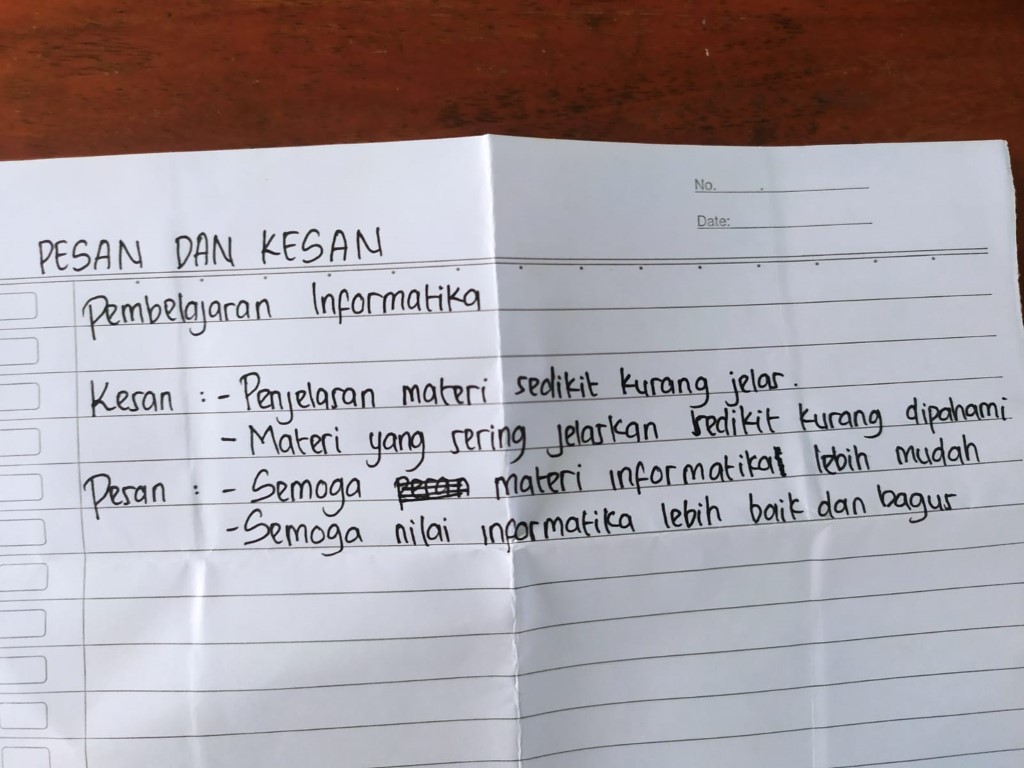 No.
Date:
PESAN DAN KESAN
Pembelajaran Informatika
Kesan : - Penjelasan materi sedikit kurang jelas.
- Materi yang sering jelaskan sedikit kurang dipahami
Pesan : - Semoga materi informatika lebih mudah
- Semoga nilai informatika lebih baik dan bagus